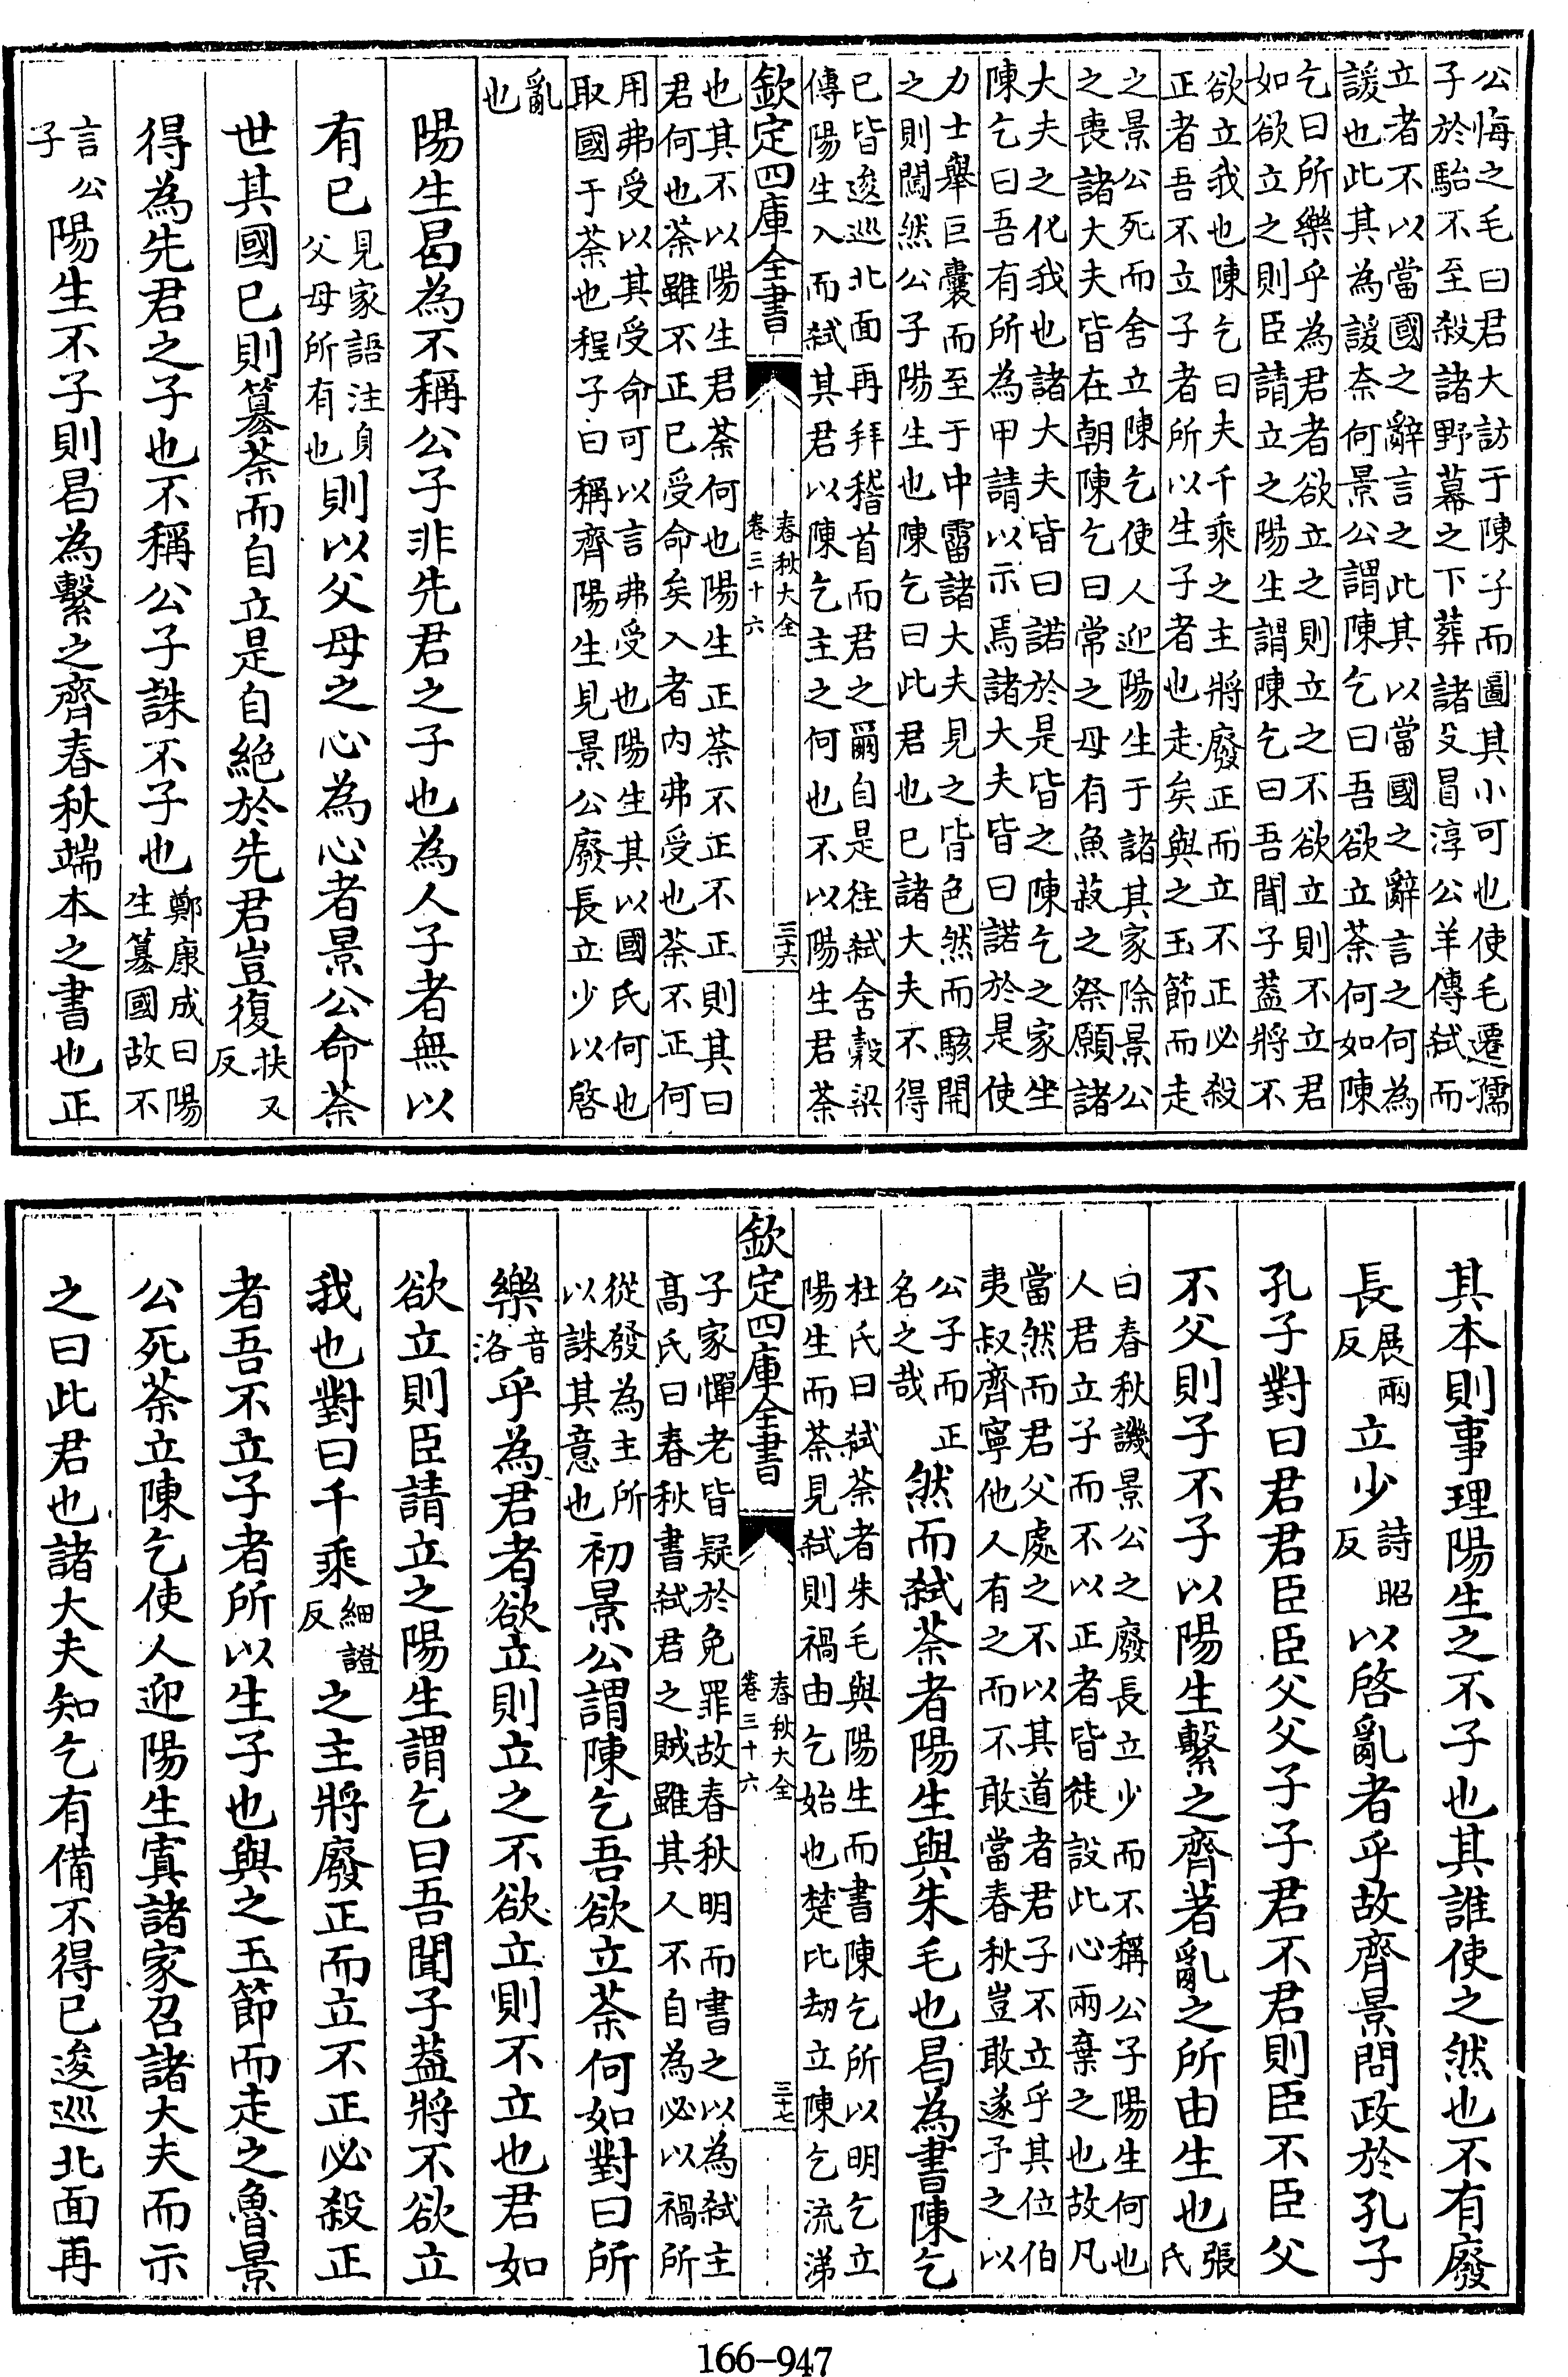 公悔之毛曰君大訪于陳子而圖其小可也使毛遷孺
子於駘不至殺諸野幕之下葬諸殳冒淳公羊傳弑而
立者不以當國之辭言之此其以當國之辭言之何為
諼也此其為諼奈何景公謂陳乞曰吾欲立荼何如陳
乞曰所樂乎為君者欲立之則立之不欲立則不立君
如欲立之則臣請立之陽生謂陳乞曰吾聞子葢將不
欲立我也陳乞曰夫千乘之主將廢正而立不正必殺
正者吾不立子者所以生子者也走矣與之玉節而走
之景公死而舍立陳乞使人迎陽生于諸其家除景公
之喪諸大夫皆在朝陳乞曰常之母有魚菽之祭願諸
大夫之化我也諸大夫皆曰諾於是皆之陳乞之家坐
陳乞曰吾有所為甲請以示焉諸大夫皆曰諾於是使
力士舉巨囊而至于中霤諸大夫見之皆色然而駭開
之則闖然公子陽生也陳乞曰此君也已諸大夫不得
已皆逡巡北面再拜稽首而君之爾自是往弑舍穀梁
傳陽生入而弑其君以陳乞主之何也不以陽生君荼
欽定四庫全書
春秋大全
卷三十六
三十六
也其不以陽生君荼何也陽生正荼不正不正則其曰
君何也荼雖不正已受命矣入者内弗受也荼不正何
用弗受以其受命可以言弗受也陽生其以國氏何也
取國于荼也程子曰稱齊陽生見景公廢長立少以啓
亂
也
陽生曷為不稱公子非先君之子也為人子者無以
有已見家語注身父母所有也則以父母之心為心者景公命荼
世其國已則簒荼而自立是自絶於先君豈復扶又反
得為先君之子也不稱公子誅不子也鄭康成曰陽生簒國故不
言公子陽生不子則曷為繫之齊春秋端本之書也正
其本則事理陽生之不子也其誰使之然也不有廢
長展兩反立少詩昭反以啓亂者乎故齊景問政於孔子
孔子對曰君君臣臣父父子子君不君則臣不臣父
不父則子不子以陽生繫之齊著亂之所由生也張氏
曰春秋譏景公之廢長立少而不稱公子陽生何也
人君立子而不以正者皆徒設此心兩棄之也故凡
當然而君父處之不以其道者君子不立乎其位伯
夷叔齊寧他人有之而不敢當春秋豈敢遂予之以
公子而正
名之哉然而弑荼者陽生與朱毛也曷為書陳乞
杜氏曰弑荼者朱毛與陽生而書陳乞所以明乞立
陽生而荼見弑則禍由乞始也楚比劫立陳乞流涕
欽定四庫全書
春秋大全
卷三十六
三十七
子家憚老皆疑於免罪故春秋明而書之以為弑主
髙氏曰春秋書弑君之賊雖其人不自為必以禍所
從發為主所
以誅其意也初景公謂陳乞吾欲立荼何如對曰所
樂音洛乎為君者欲立則立之不欲立則不立也君如
欲立則臣請立之陽生謂乞曰吾聞子葢將不欲立
我也對曰千乘繩證反之主將廢正而立不正必殺正
者吾不立子者所以生子也與之玉節而走之魯景
公死荼立陳乞使人迎陽生寘諸家召諸大夫而示
之曰此君也諸大夫知乞有備不得已逡巡北面再
166-947